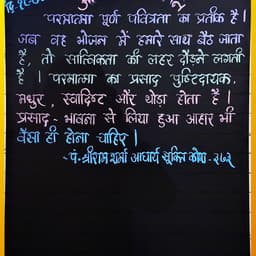 परमात्मा पूर्ण पवित्रता का प्रतीक है।
जब वह भोजन में हमारे साथ बैठ जाता
है, तो सात्विकता की लहर दौड़ने लगती
है। परमात्मा का प्रसाद पुष्टिदायक,
मधुर, स्वादिष्ट और थोड़ा होता है।
प्रसाद-भावना से लिया हुआ आहार भी
वैसा ही होना चाहिए।
-पं.श्रीराम शर्मा आचार्य सूक्ति कोष-२७२